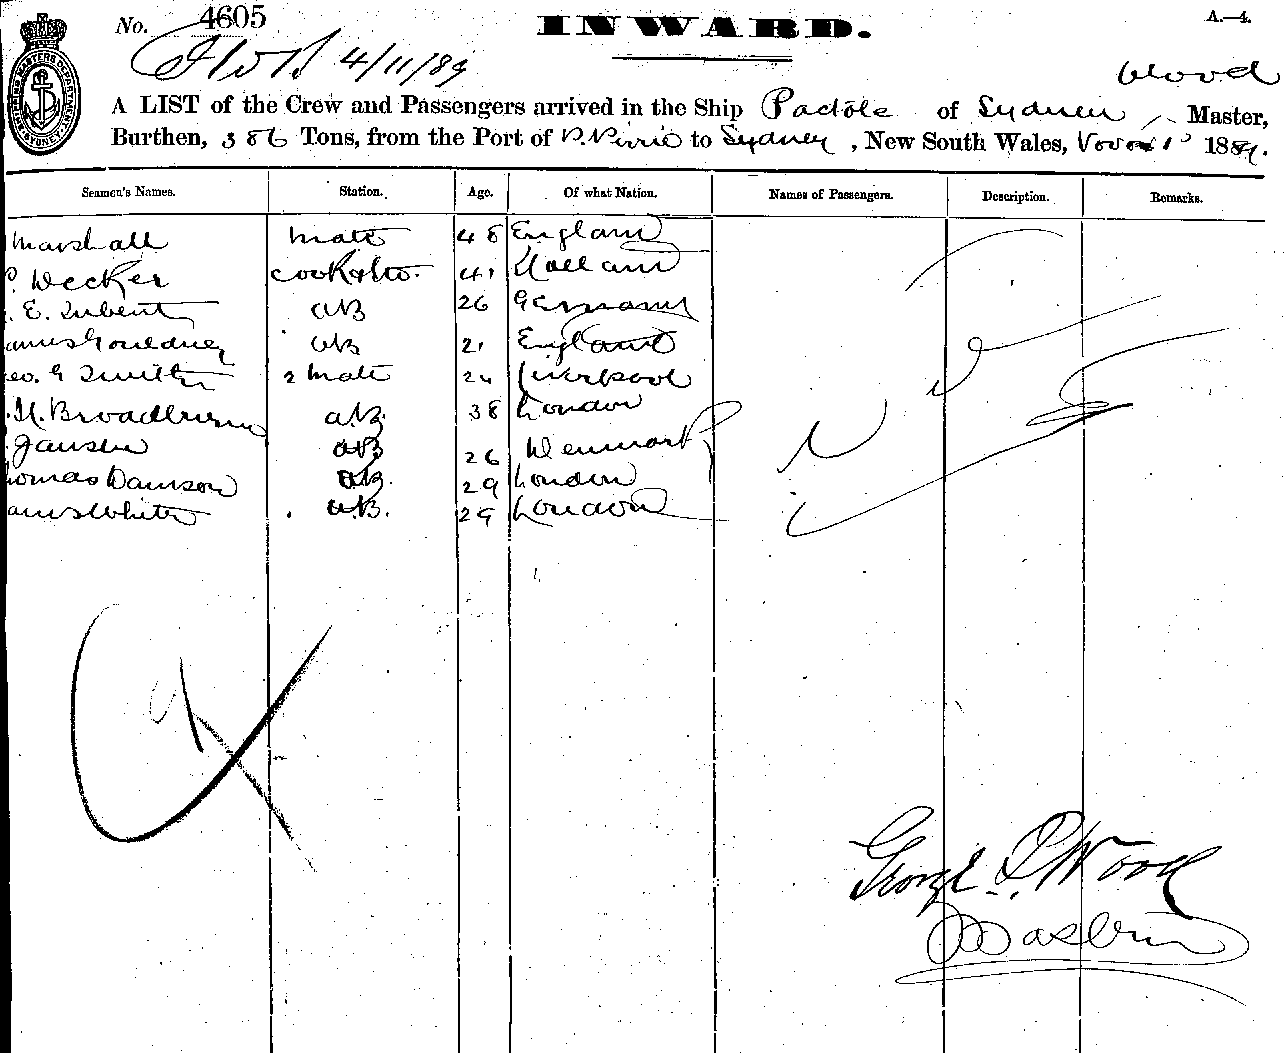 No. 4605 INWARD. A.—4.
4/11/89
Wood
A LIST of the Crew and Passengers arrived in the Ship Pactole of Sydney, Master,
Burthen, 386 Tons, from the Port of P. Pirie to Sydney, New South Wales, 188
Seamen's Names. Station. Age. Of what Nation. Names of Passengers. Description. Remarks.
Marshall mate 48 England
Decker cook & 41 Holland
E. AB 26 Germany
Gouldney AB 21 England
eo. G Smith 2 mate 24 Liverpool
H. Broadburn AB 38 London
AB 26 Denmark
homas Dawson AB 29 London
ames White AB. 29 London
George P. Wood